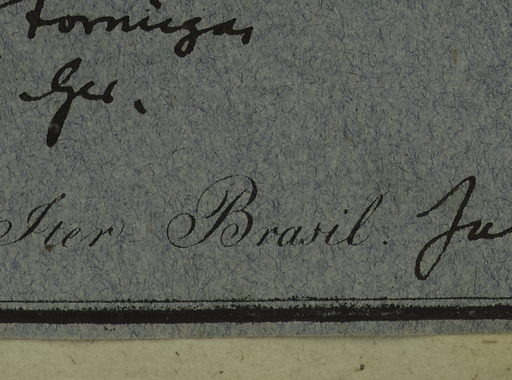 Formigas,
Ges.
Iter Brasil. Ju